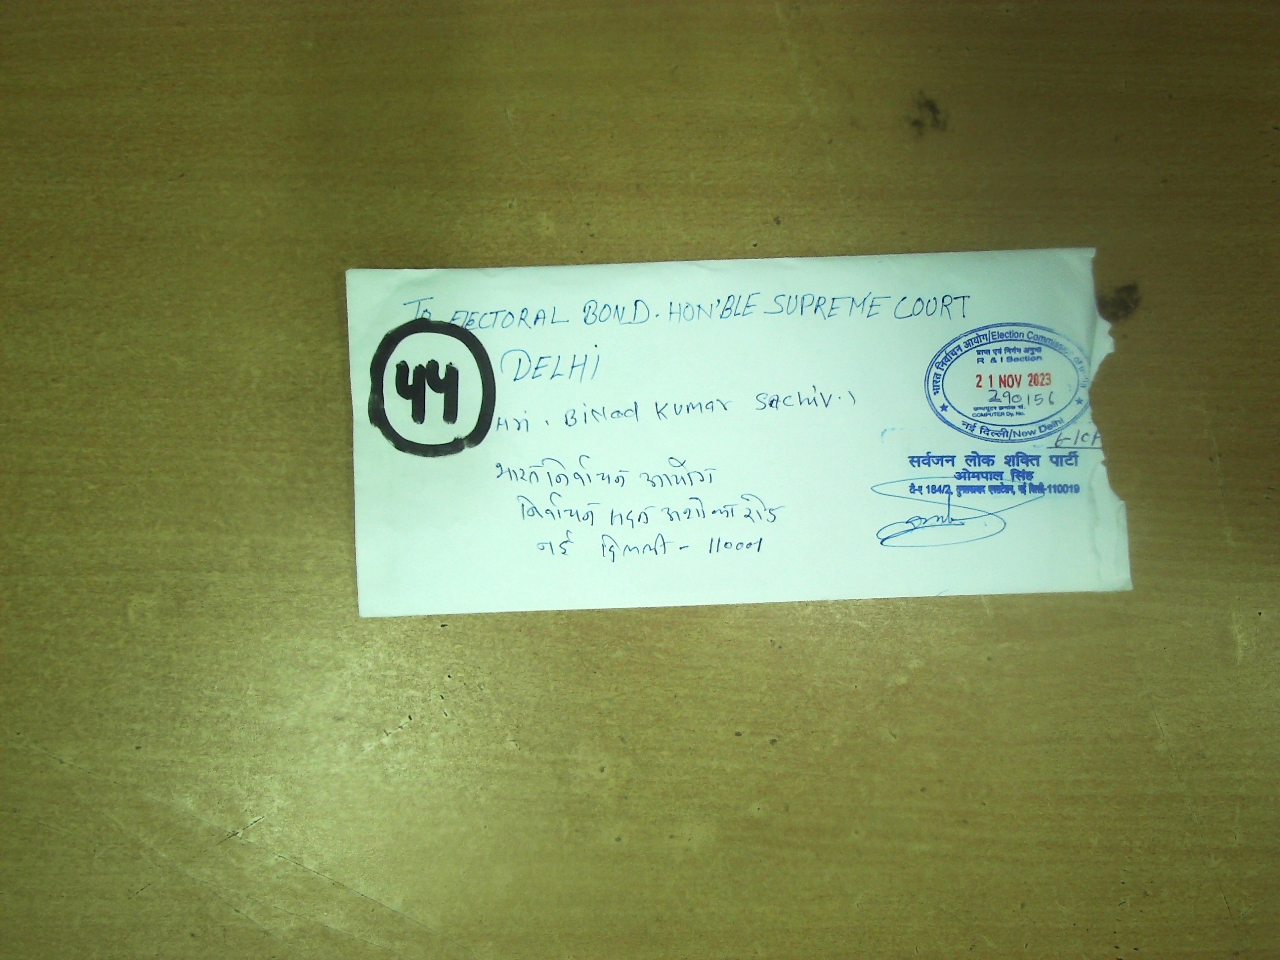 To ELECTORAL BOND. HON'BLE SUPREME COURT
DELHI
44
Binod Kumar Sachiv.
भारत निर्वाचन आयोग
निर्वाचन सदन अशोका रोड
नई दिल्ली - 110001
भारत निर्वाचन आयोग/Election Commission of India
प्राप्त एवं निर्गम अनुभाग
R & I Section
21 NOV 2023
290156
COMPUTER Dy. No.
नई दिल्ली/New Delhi
सर्वजन लोक शक्ति पार्टी
ओमपाल सिंह
184/2, नई दिल्ली-110019